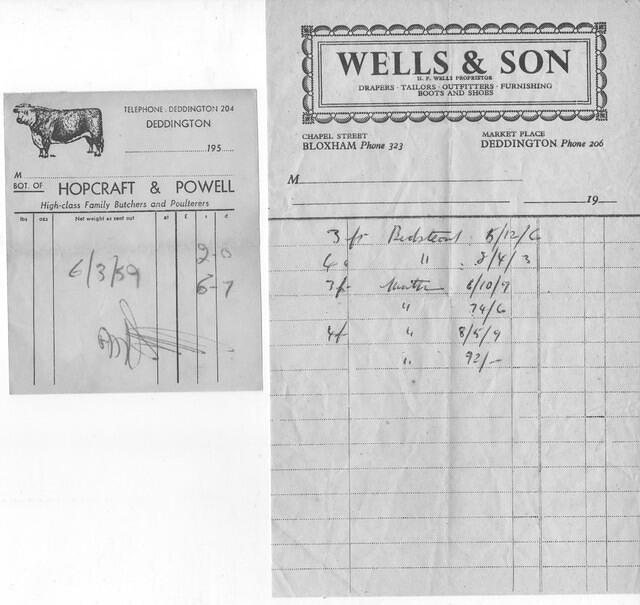 TELEPHONE : DEDDINGTON 204
DEDDINGTON
195
M
BOT. OF HOPCRAFT & POWELL
High-class Family Butchers and Poulterers
lbs ozs Net weight as sent out at £ s d
2-0
6/3/59
6-7
WELLS & SON
H. F. WELLS PROPRIETOR
DRAPERS · TAILORS · OUTFITTERS · FURNISHING
BOOTS AND SHOES
CHAPEL STREET
BLOXHAM Phone 323
MARKET PLACE
DEDDINGTON Phone 206
M
19
3 ft Bedstead 5/12/6
" 8/4/3
3 f 6/10/9
" 74/6
4 f " 8/5/9
" 92/-